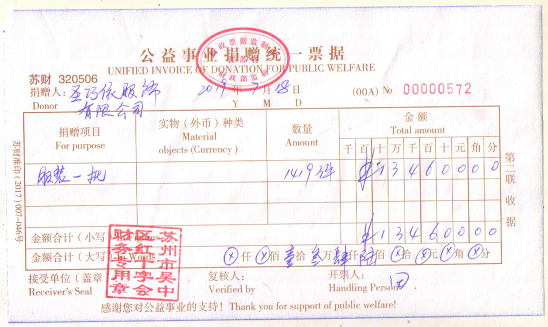 公益事业捐赠统一票据
UNIFIED INVOICE OF DONATION FOR PUBLIC WELFARE
苏财 320506
捐赠人: 服饰 2017年 月18日 (00A) No 00000572
Donor 有限公司 Y M D
捐赠项目 实物（外币）种类 数量 金额
For purpose Material objects (Currency) Amount Total amount
千 百 十 万 千 百 十 元 角 分
服装一批 1419件 ¥ 1 3 4 6 0 0 0 0
金额合计（小写） ¥ 1 3 4 6 0 0 0 0
金额合计（大写）In Words ⊗仟 ⊗佰 壹拾 叁万 肆仟 陆佰 ⊗拾 ⊗元 ⊗角 ⊗分
接受单位（盖章 复核人: 开票人:
Receiver's Seal Verified by Handling Person
感谢您对公益事业的支持! Thank you for support of public welfare!
苏财准印(2017)007-046号
第二联 收据
苏州市吴中
区红十字会
财务专用章